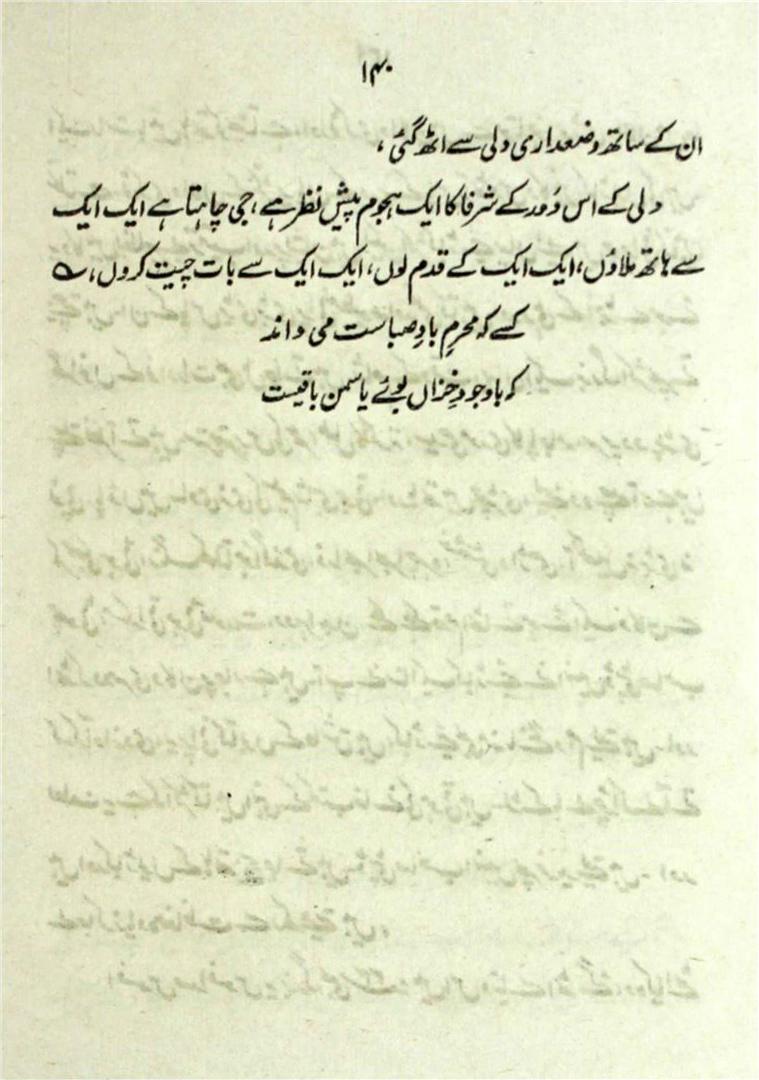 ۱۴۰
ان کے ساتھ وضعداری دلی سے اٹھ گئی ،
دلی کے اس دَور کے شرفا کا ایک ہجوم پیشِ نظر ہے ، جی چاہتا ہے ایک ایک
سے ہاتھ ملاؤں ، ایک ایک کے قدم لوں ، ایک ایک سے بات چیت کروں ، ؎
کسے کہ محرمِ بادِ صباست می داند
کہ باوجودِ خزاں بوئے یاسمن باقیست